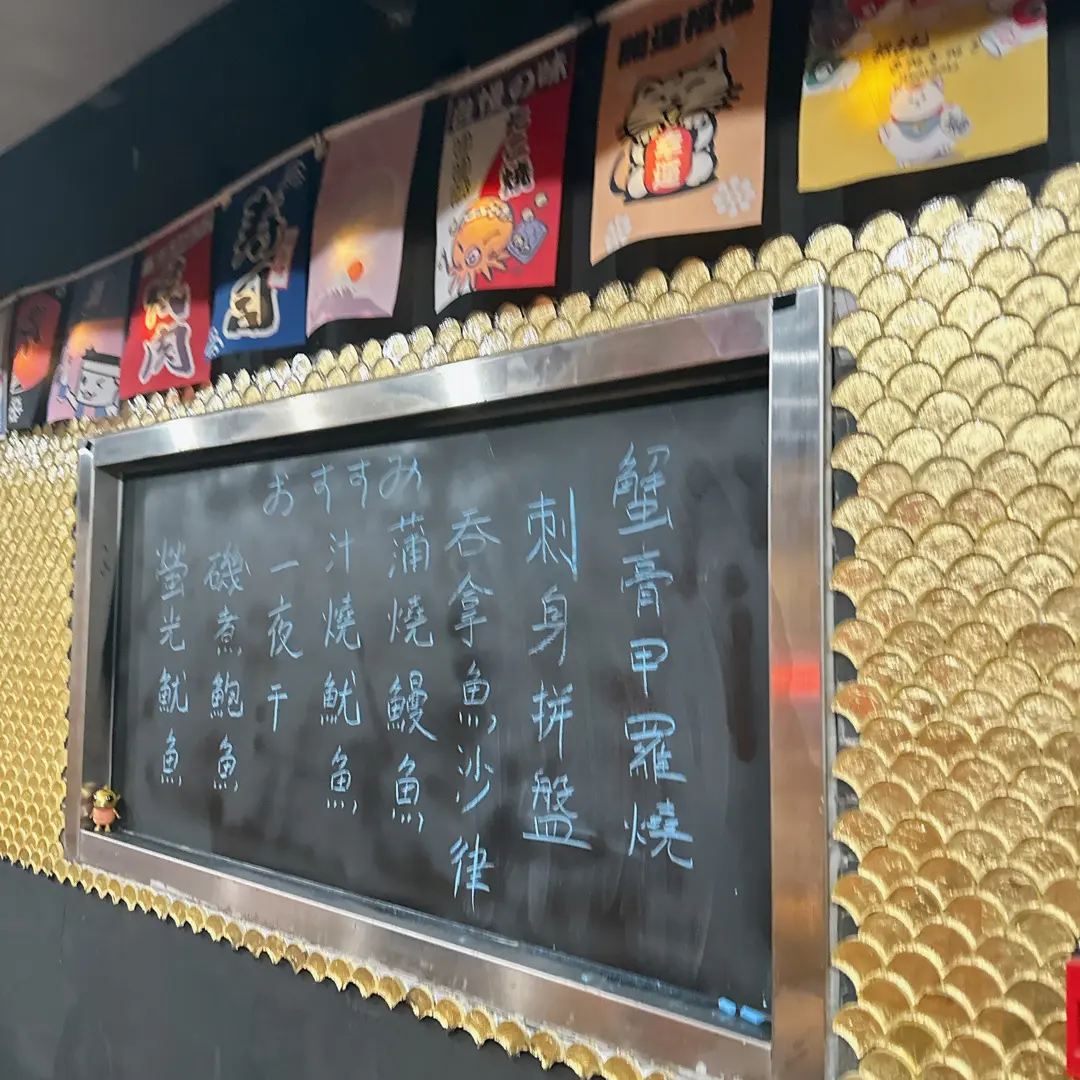 蟹膏甲羅燒
刺身拼盤
吞拿魚沙律
おすすみ
蒲燒鰻魚
汁燒魷魚
一夜干
磯煮鮑魚
螢光魷魚
の味
寿司
焼肉